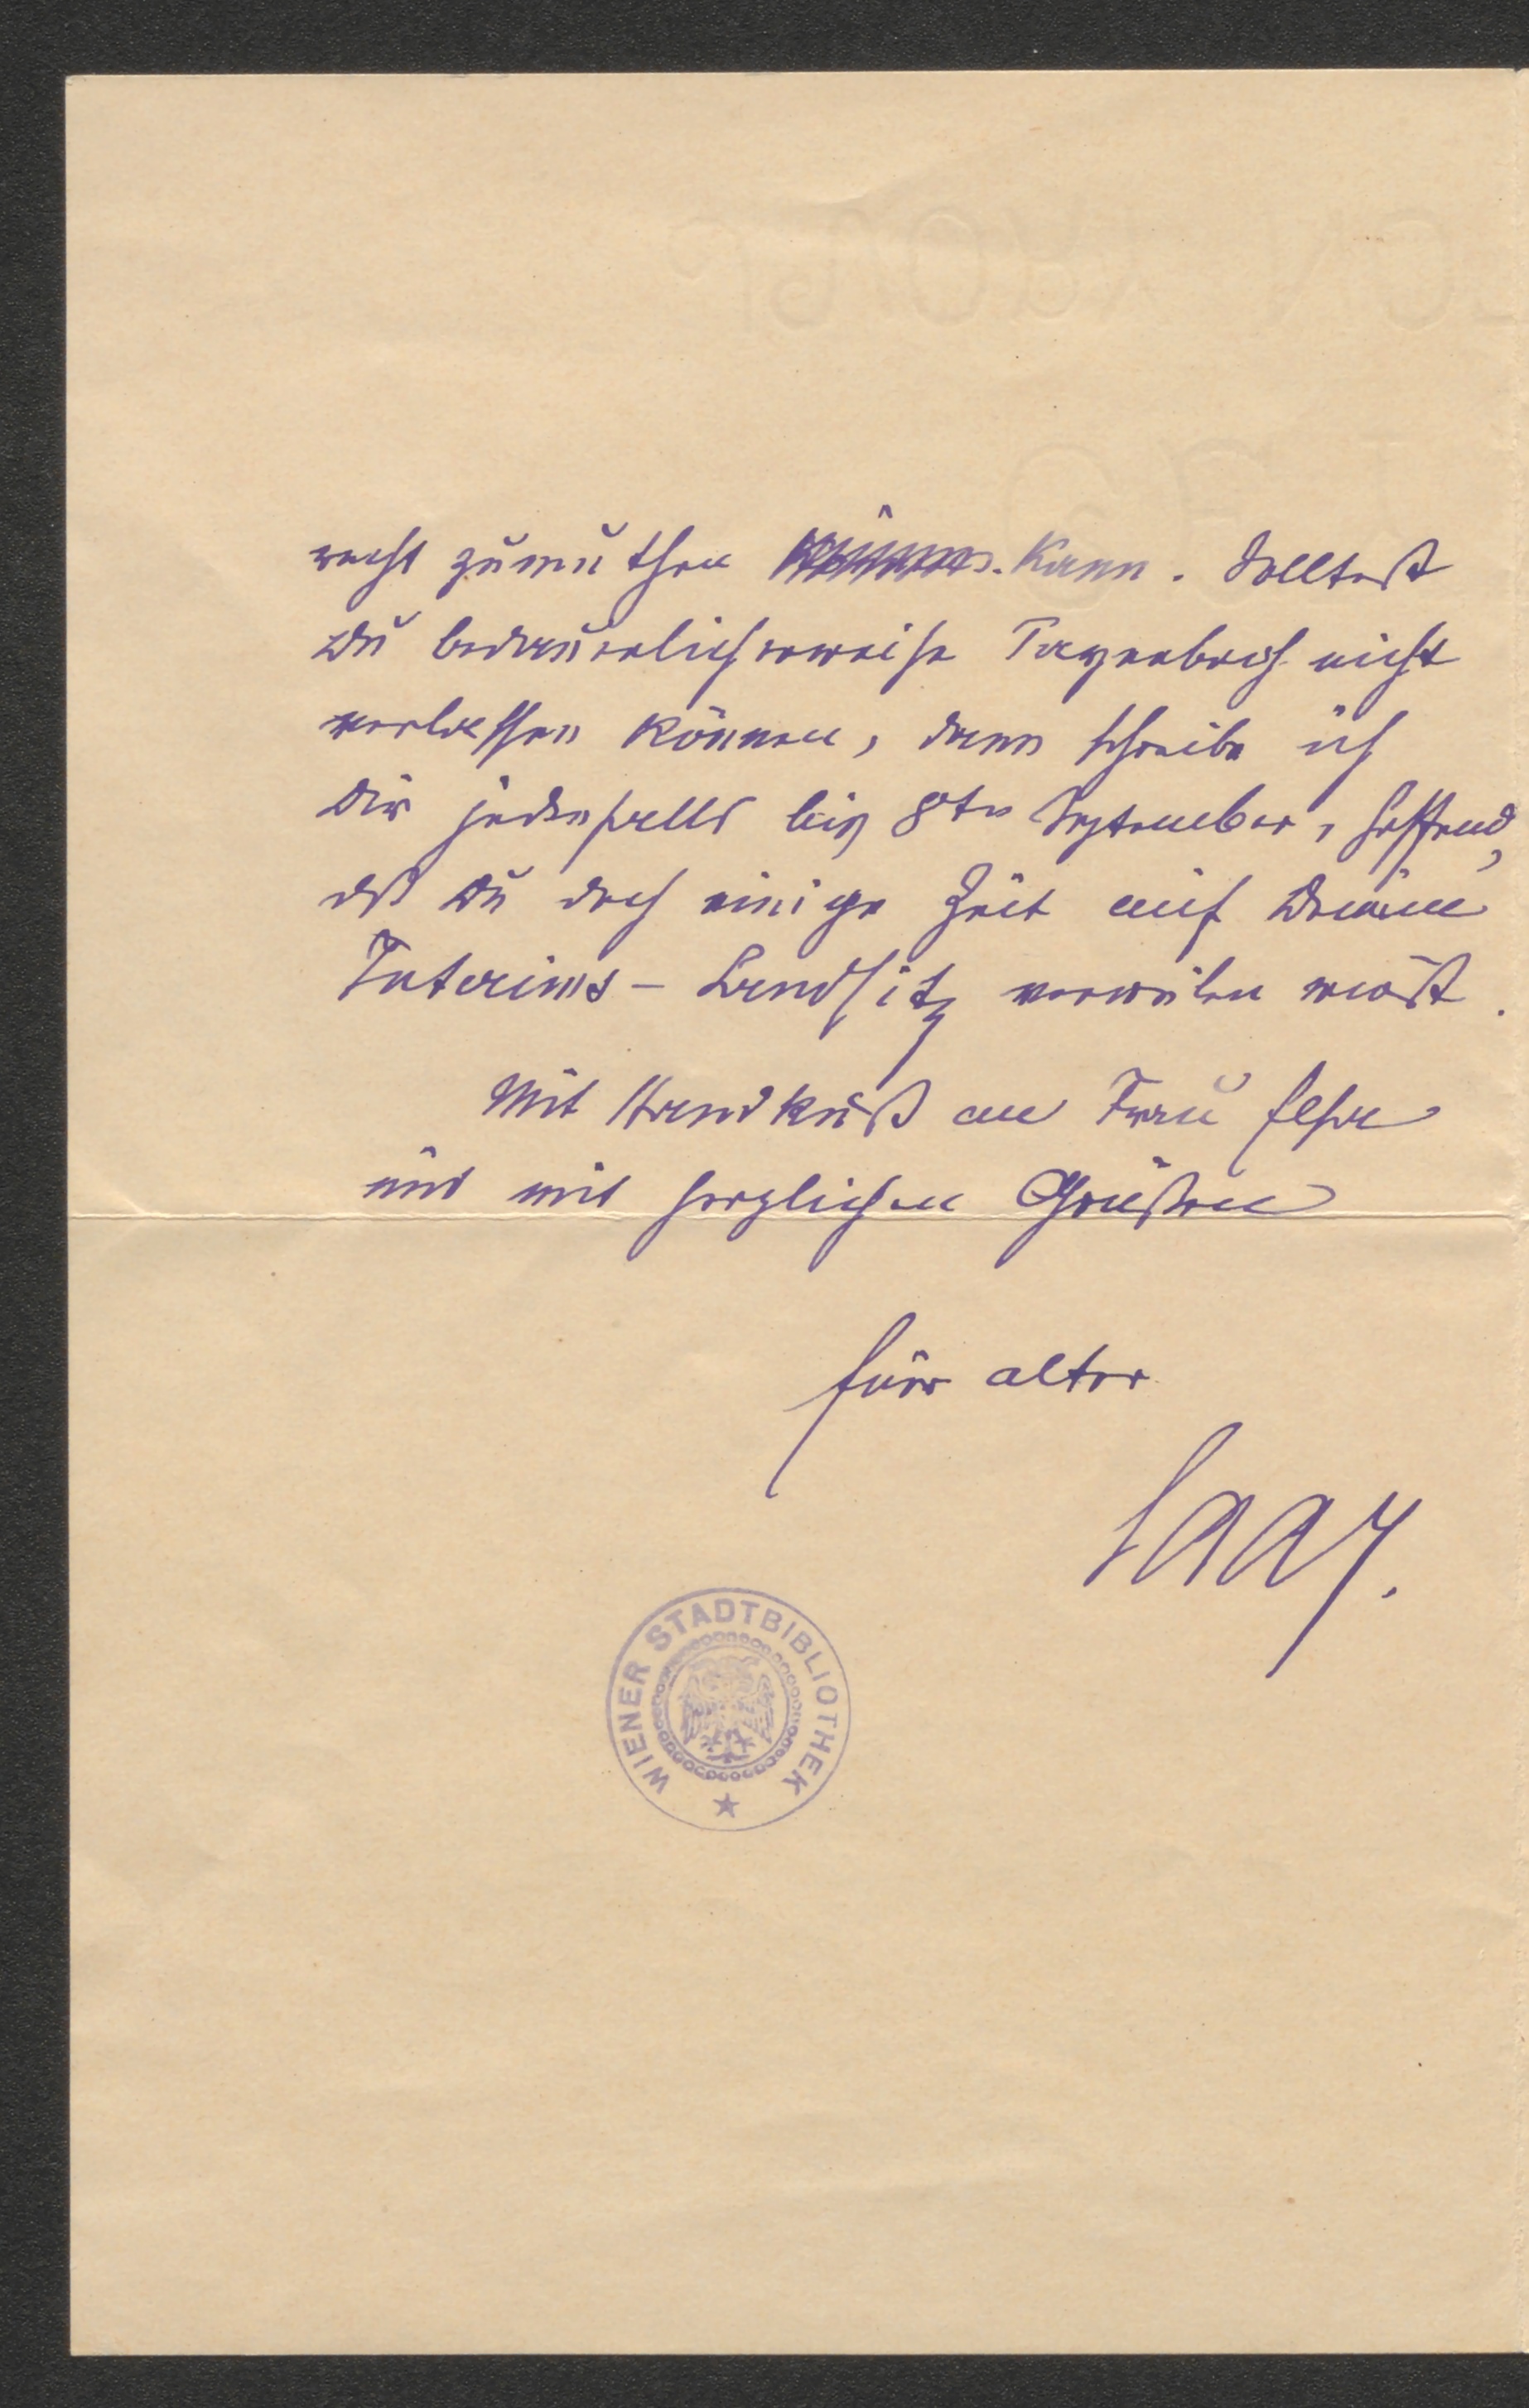 recht zumuthen kann. Solltest
Du bedauerlicherweise nicht
verlassen können, dann schreibe ich
Dir jedenfalls bis 8ten September, hoffend,
daß Du doch einige Zeit auf Deinem
Interims-Landsitz verweilen wirst.
Mit Handkuß an Frau
und mit herzlichen Grüßen
Euer alter
Saar.
WIENER STADTBIBLIOTHEK